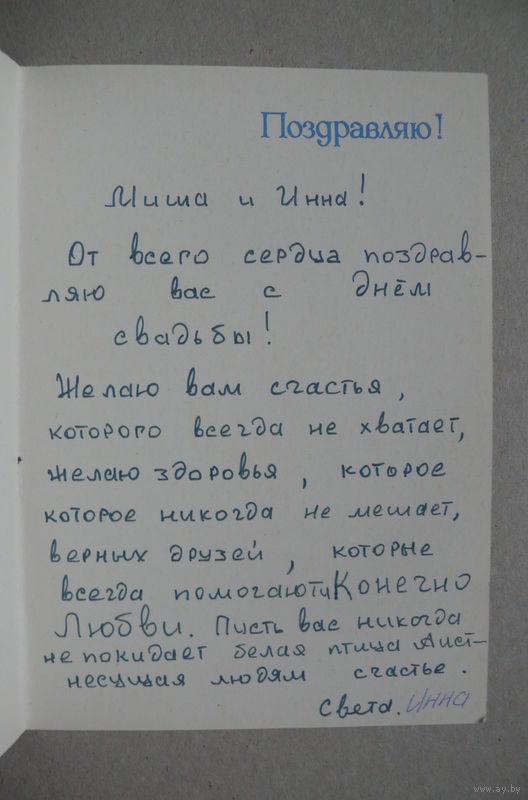 Поздравляю!
Миша и Инна!
От всего сердца поздрав-
ляю вас с днём
свадьбы!
Желаю вам счастья,
которого всегда не хватает,
желаю здоровья, которое
которое никогда не мешает,
верных друзей, которые
всегда помогают и Конечно
Любви. Пусть вас никогда
не покидает белая птица Аист-
несущая людям счастье.
Света. Инна
www.ay.by